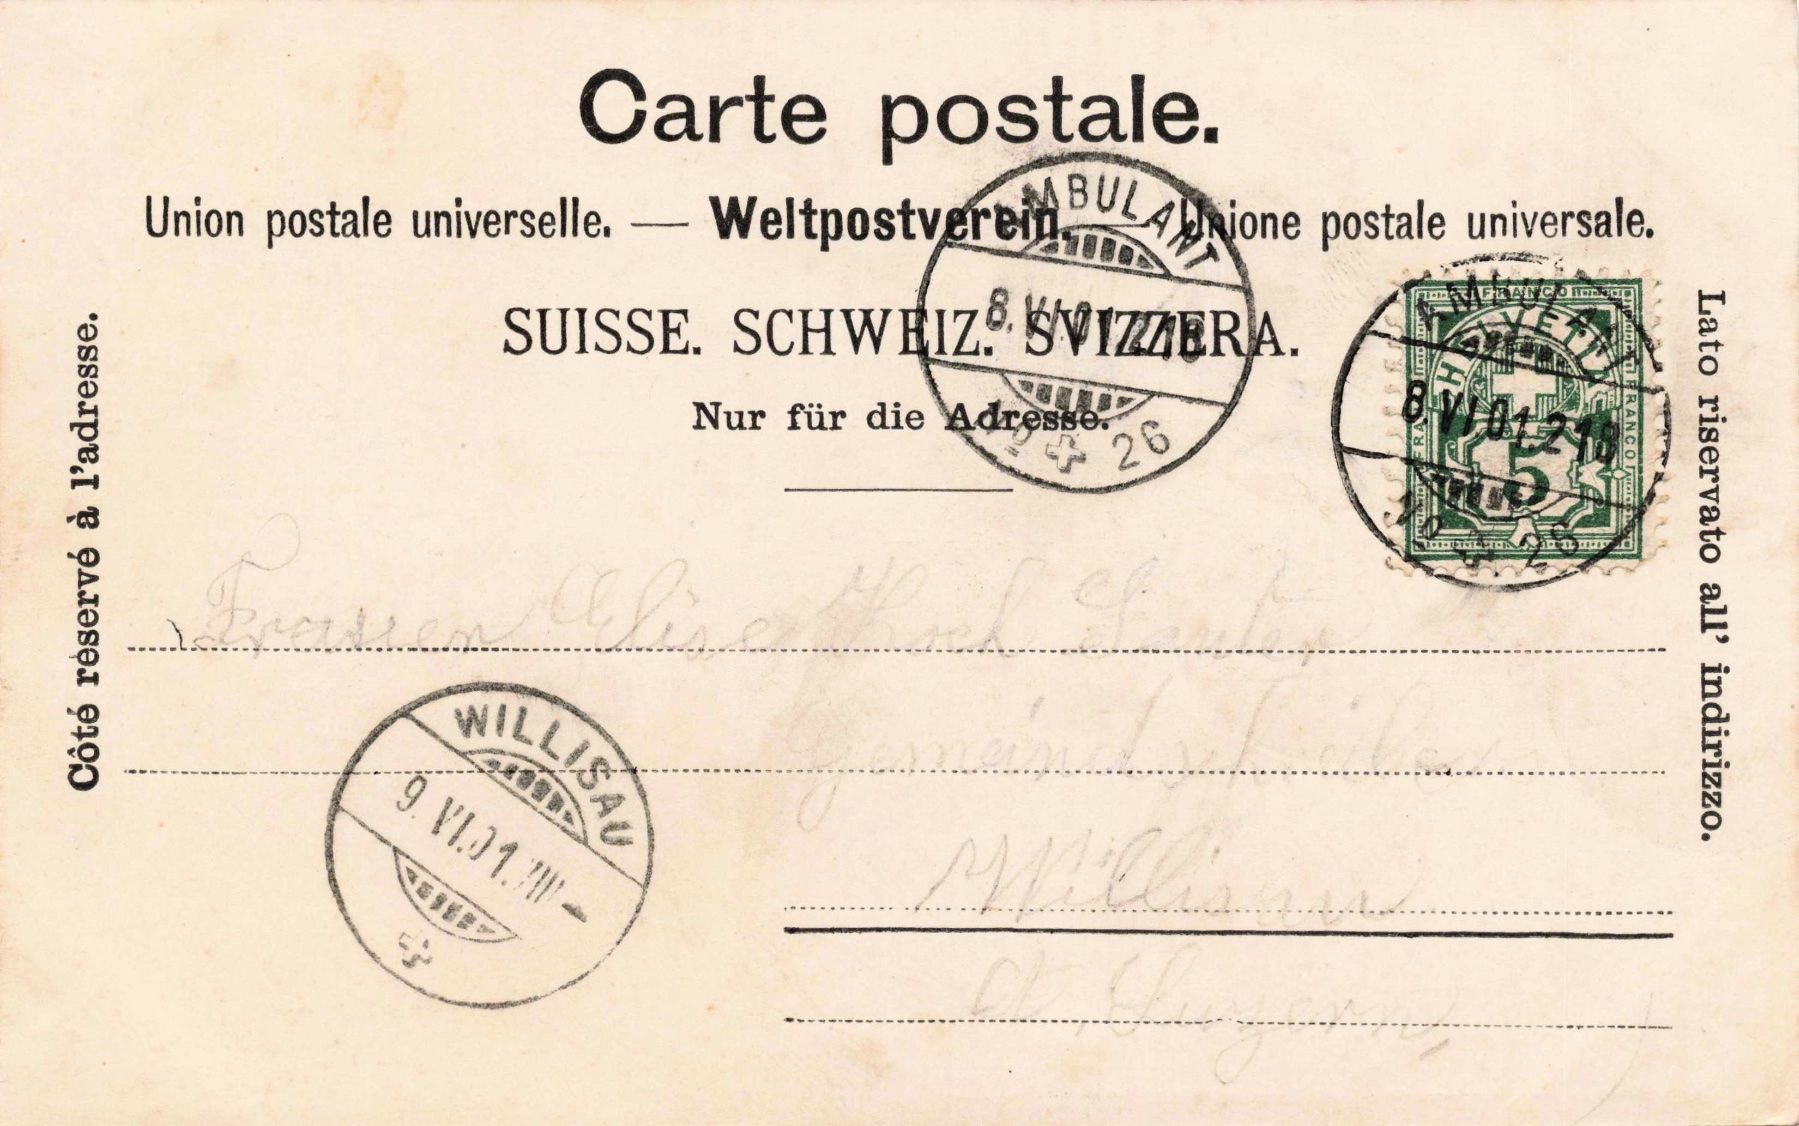 Carte postale.
Union postale universelle. — Weltpostverein. — Unione postale universale.
SUISSE. SCHWEIZ. SVIZZERA.
Nur für die Adresse.
Côté réservé à l'adresse.
Lato riservato all' indirizzo.
AMBULANT
8.VI.01.218
No 26
FRANCO
HELVETIA
FRANCO
FRANCO
5
AMBULANT
8.VI.01.218
No 26
Elise Koch Sauter
Willisau
Luzern,
WILLISAU
9.VI.01.VIII